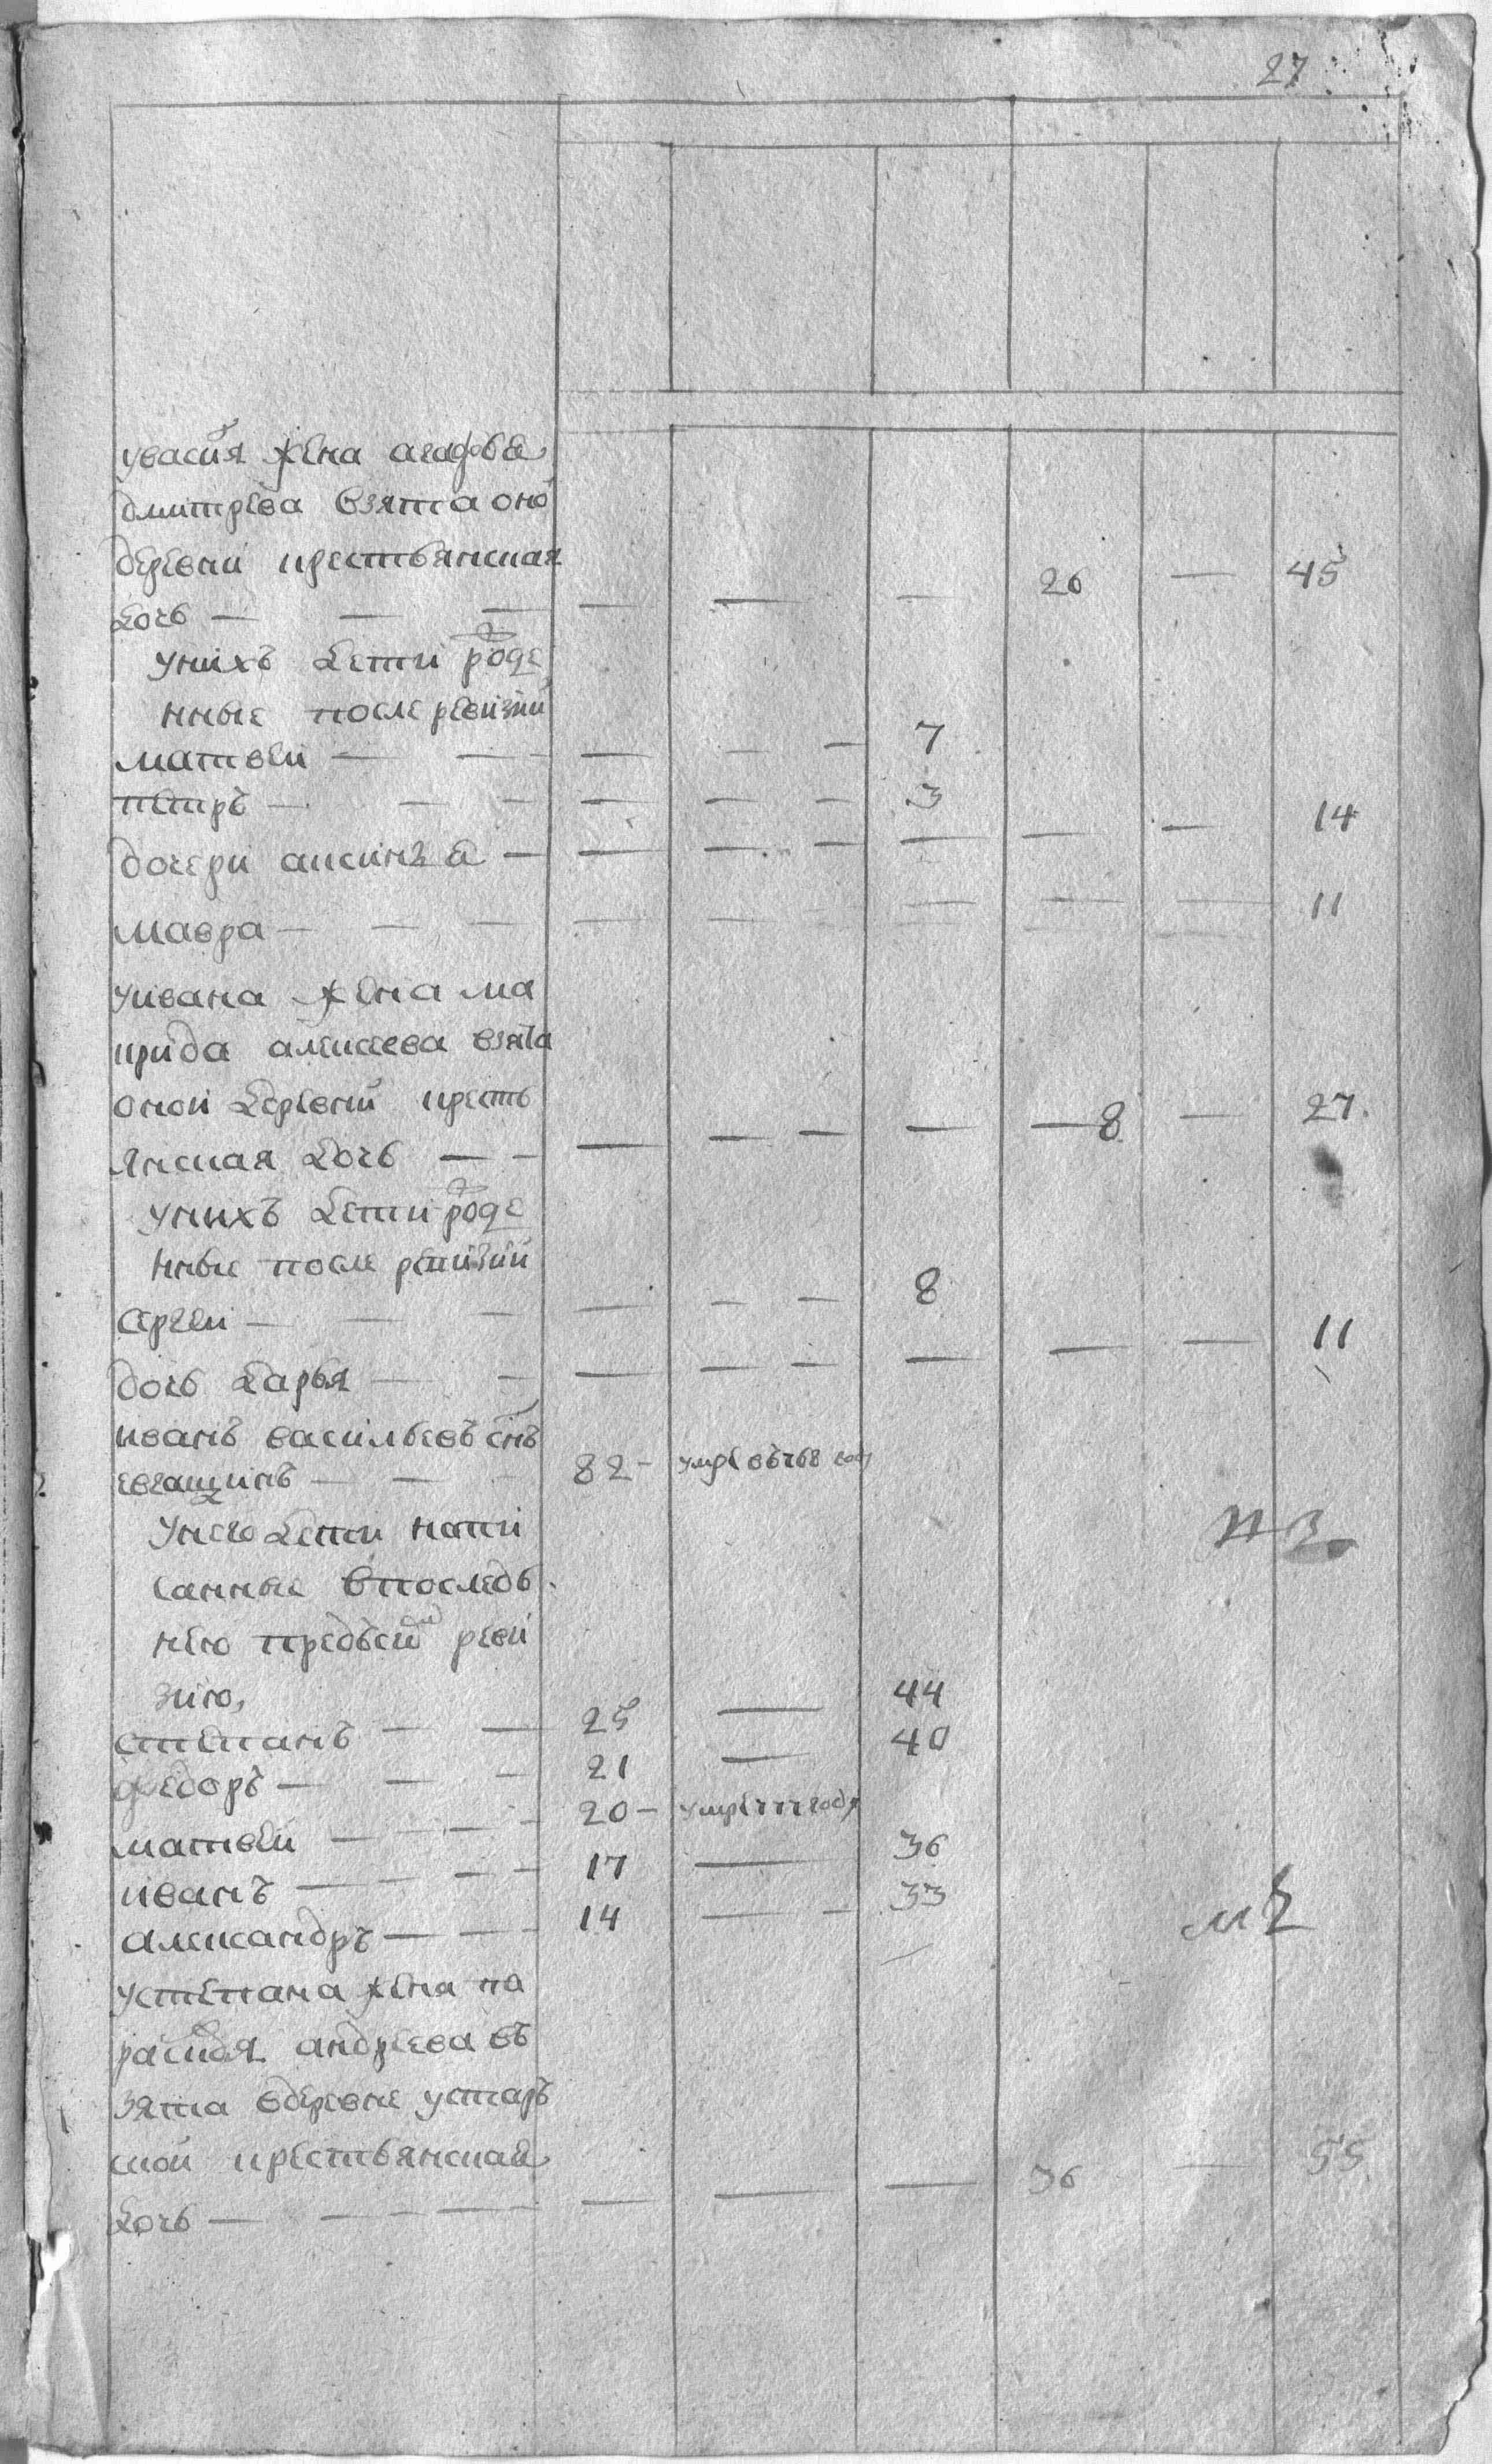 27
увасия жена агафья
дмитрева взята оно
деревни крестьянская
дочь — — — — — — 26 — 45
унихъ дети роже
нные после ревизии
матвеи — — — — — 7
петръ — — — — — 3
дочери аксинья — — — — — — — 14
мавра — — — — — — — — 11
уивана жена ма
врида алексеева взята
онои деревни кресть
янская дочь — — — — — — — 8 — 27
унихъ дети роже
нные после ревизии
сергеи — — — — — — 8
дочь дарья — — — — — — — — 11
иванъ васильевъ снъ
— — 82 — умре въ году
унего дети напи
санные впоследь
нею предъ сею реви
зию,
степанъ — — 25 — 44
федоръ — — — 21 — 40
матвеи — — — — 20 — умре году
иванъ — — — — 17 — 36
александръ — — — 14 — — 33
м 2
устепана жена па
расковя андреева въ
зята вдеревне устаръ
скои крестьянская
дочь — — — — — — — 36 — 55